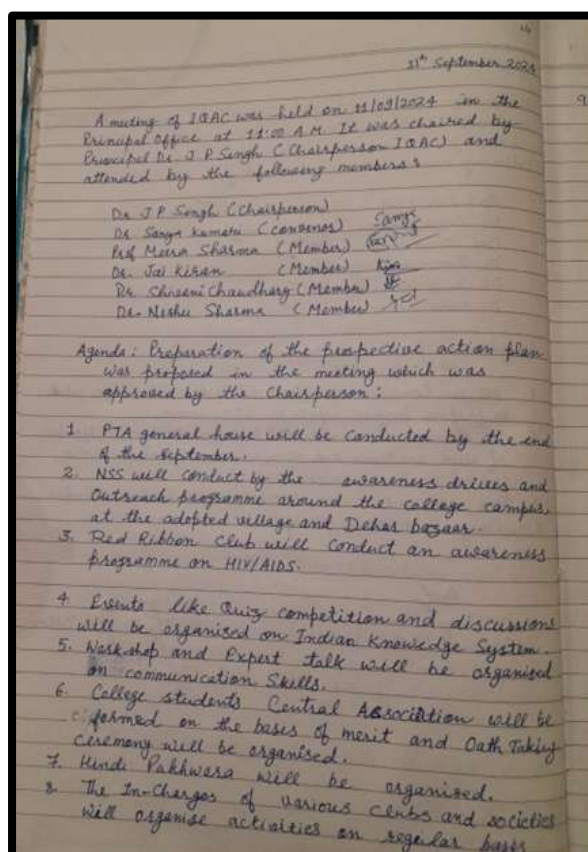 11th September 2024
A meeting of IQAC was held on 11/09/2024 in the
Principal Office at 11:00 A.M. It was chaired by
Principal Dr. J P Singh (Chairperson IQAC) and
attended by the following members:
Dr. J P Singh (Chairperson)
Dr Sanya Kumari (Convenor)
Prof Meera Sharma (Member)
Dr. Jai Kiran (Member)
Dr. Shivani Chaudhary (Member)
Dr. Nishu Sharma (Member)
Agenda: Preparation of the prospective action plan
was proposed in the meeting which was
approved by the Chairperson:
1. PTA general house will be conducted by the end
of the September.
2. NSS will conduct by the awareness drives and
Outreach programme around the college campus,
at the adopted village and Dehar bazaar.
3. Red Ribbon Club will conduct an awareness
programme on HIV/AIDS.
4. Events like Quiz competition and discussions
will be organised on Indian Knowledge System.
5. Workshop and Expert talk will be organised
on communication Skills.
6. College students Central Association will be
formed on the bases of merit and Oath Taking
ceremony will be organised.
7. Hindi Pakhwara will be organised.
8. The In-Charges of various clubs and societies
will organise activities on regular bases